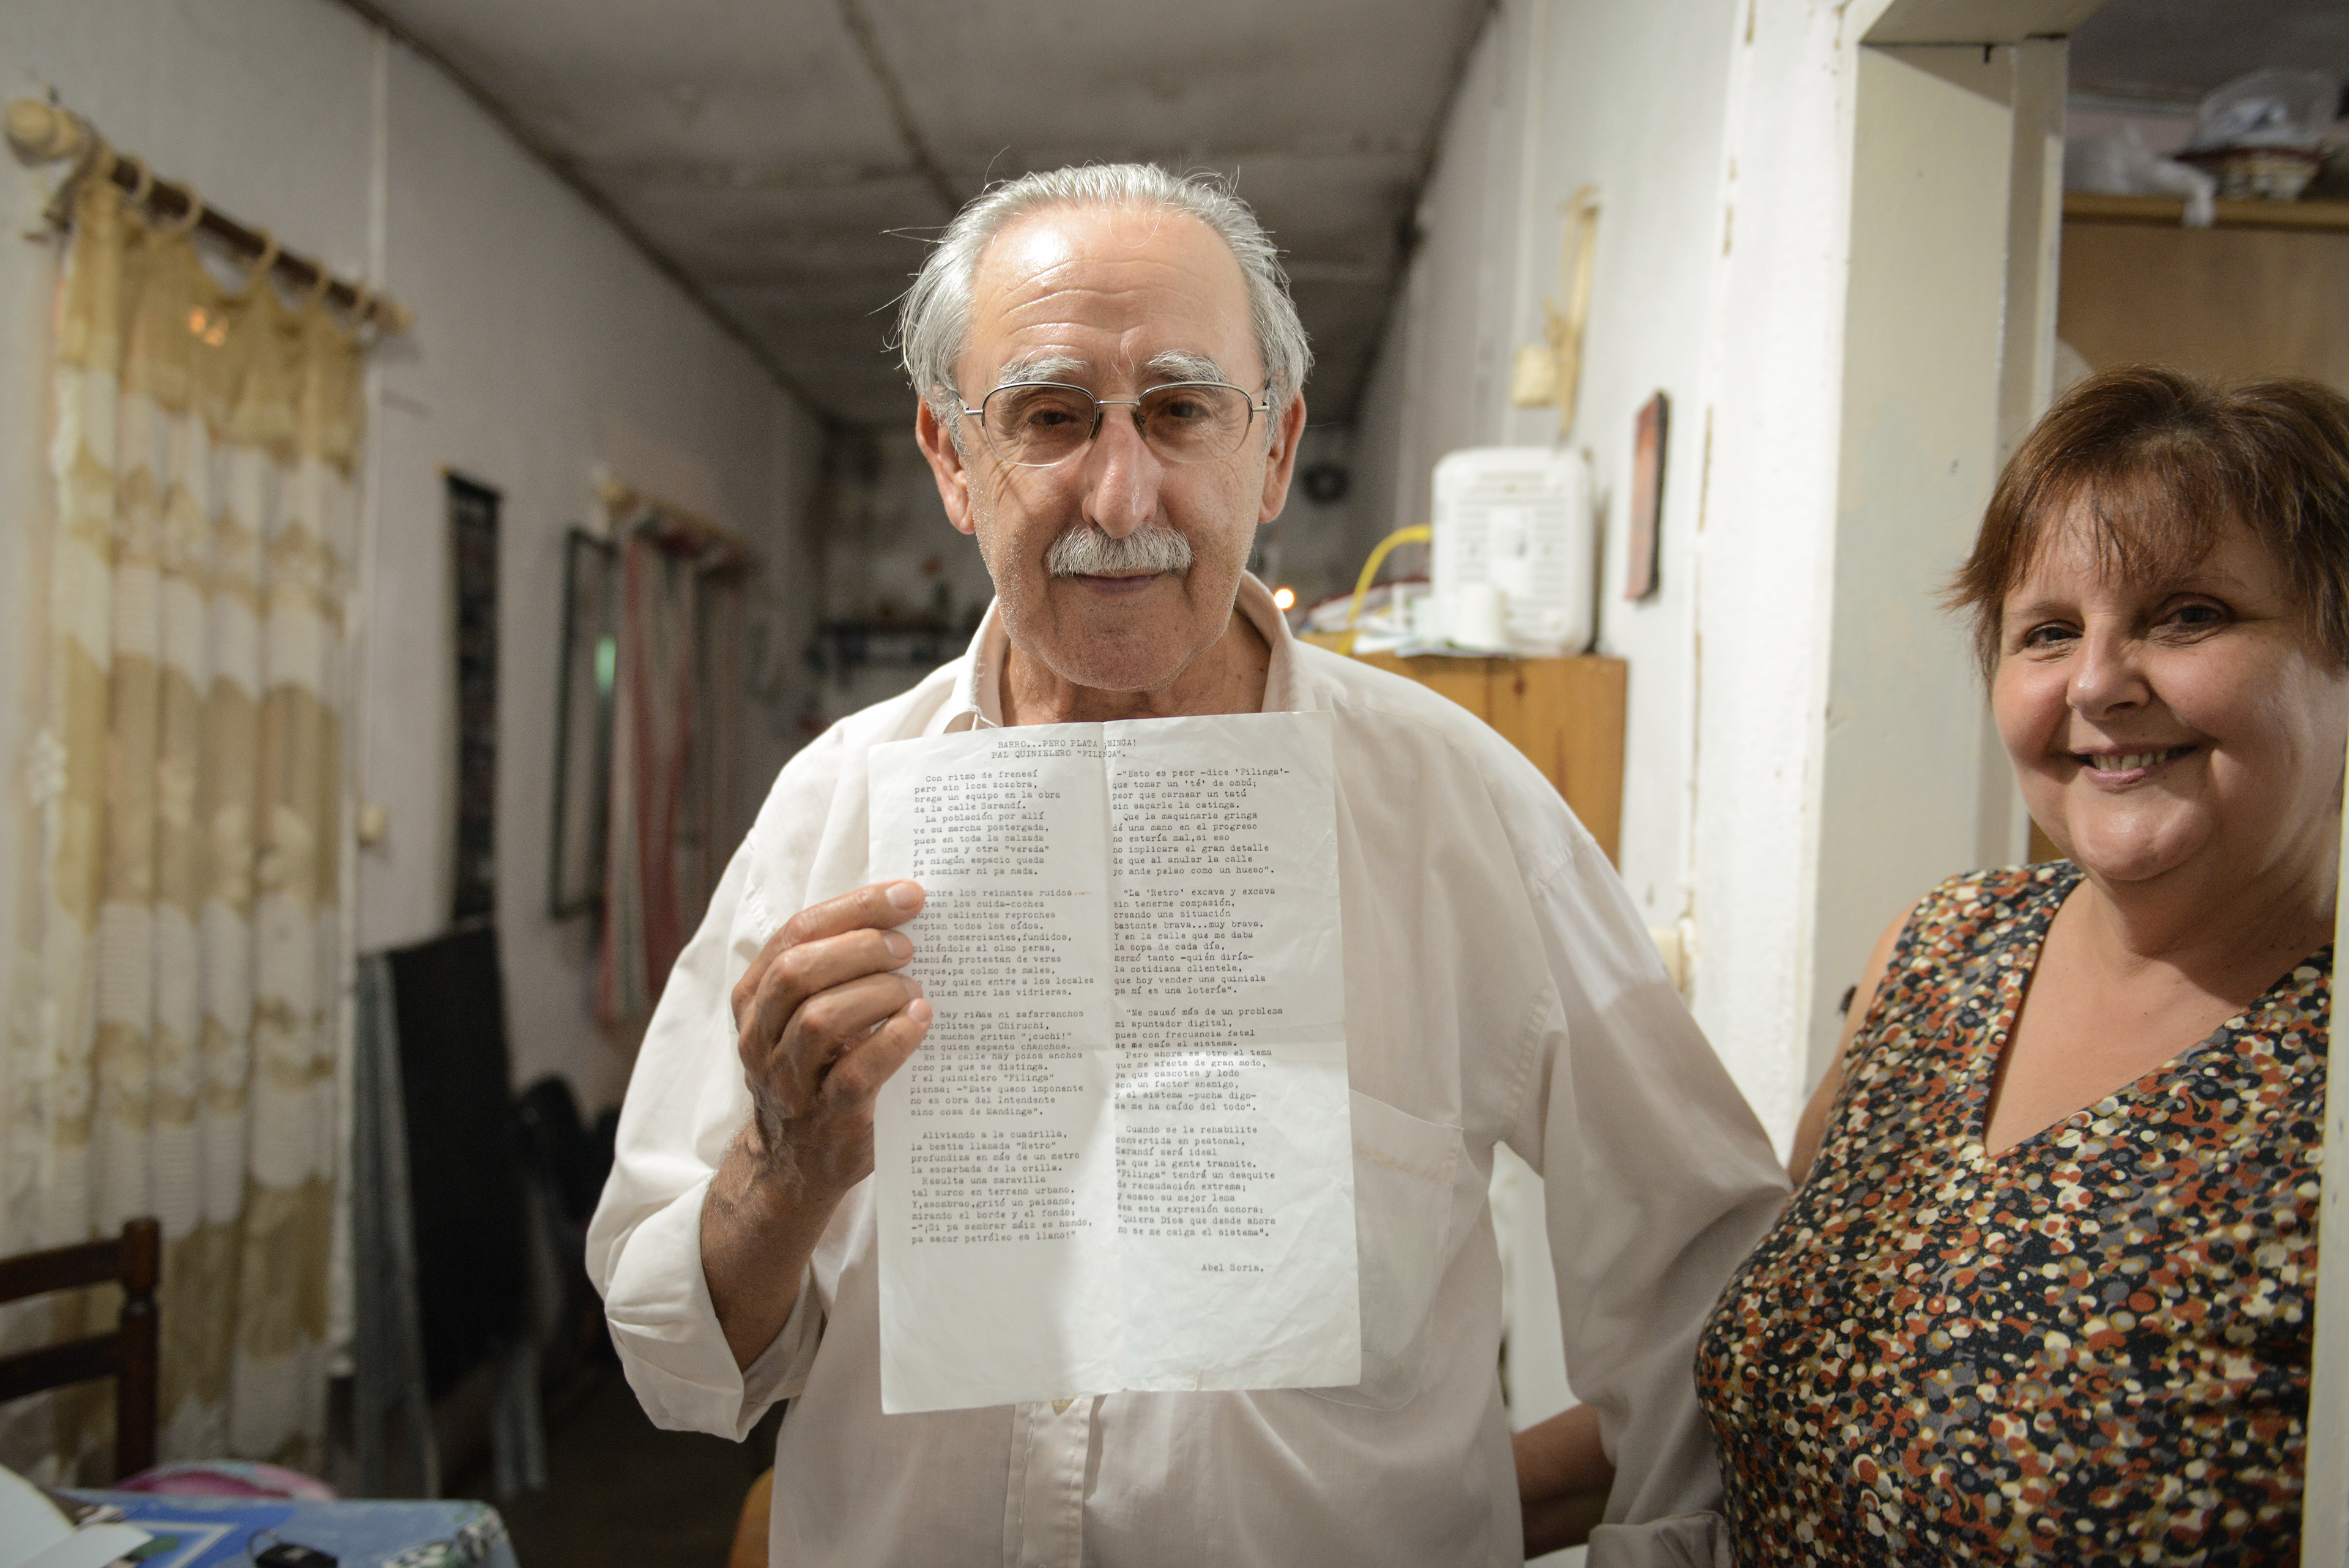 BARRO...PERO PLATA ¡MINGA!
PAL QUINIELERO "PILINGA".
Con ritmo de frenesí
pero sin loca zozobra,
brega un equipo en la obra
de la calle Sarandí.
La población por allí
ve su marcha postergada,
pues en toda la calzada
y en una y otra "vereda"
ya ningún espacio queda
pa caminar ni pa nada.
Entre los reinantes ruidos
los cuida-coches
cuyos calientes reproches
captan todos los oídos.
Los comerciantes,fundidos,
pidiéndole al olmo peras,
también protestan de veras
porque,pa colmo de males,
no hay quien entre a los locales
quien mire las vidrieras.
hay riñas ni zafarranchos
pa Chiruchi,
muchos gritan "¡cuchi!"
como quien espanta chanchos.
En la calle hay pozos anchos
como pa que se distinga.
Y el quinielero "Pilinga"
piensa; -"Este queco imponente
no es obra del Intendente
sino cosa de Mandinga".
Aliviando a la cuadrilla,
la bestia llamada "Retro"
profundiza en más de un metro
la escarbada de la orilla.
Resulta una maravilla
tal surco en terreno urbano.
Y,asombrao,gritó un paisano,
mirando el borde y el fondo;
-"¡Si pa sembrar máiz es hondo,
pa sacar petróleo es llano!"
-"Esto es peor -dice 'Pilinga'-
que tomar un 'té' de ombú;
peor que carnear un tatú
sin sacarle la catinga.
Que la maquinaria gringa
dé una mano en el progreso
no estaría mal,si eso
no implicara el gran detalle
de que al anular la calle
yo ande pelao como un hueso".
"La 'Retro' excava y excava
sin tenerme compasión,
creando una situación
bastante brava...muy brava.
Y en la calle que me daba
la sopa de cada día,
mermó tanto -quién diría-
la cotidiana clientela,
que hoy vender una quiniela
pa mí es una lotería".
"Me causó más de un problema
mi apuntador digital,
pues con frecuencia fatal
se me caía el sistema.
Pero ahora es otro el tema
que me afecta de gran modo,
ya que cascotes y lodo
son un factor enemigo,
y el sistema -pucha digo-
se me ha caído del todo".
Cuando se le rehabilite
convertida en peatonal,
Sarandí será ideal
pa que la gente transite.
"Pilinga" tendrá un desquite
de recaudación extrema;
y acaso su mejor lema
sea esta expresión sonora;
"Quiera Dios que desde ahora
no se me caiga el sistema".
Abel Soria.